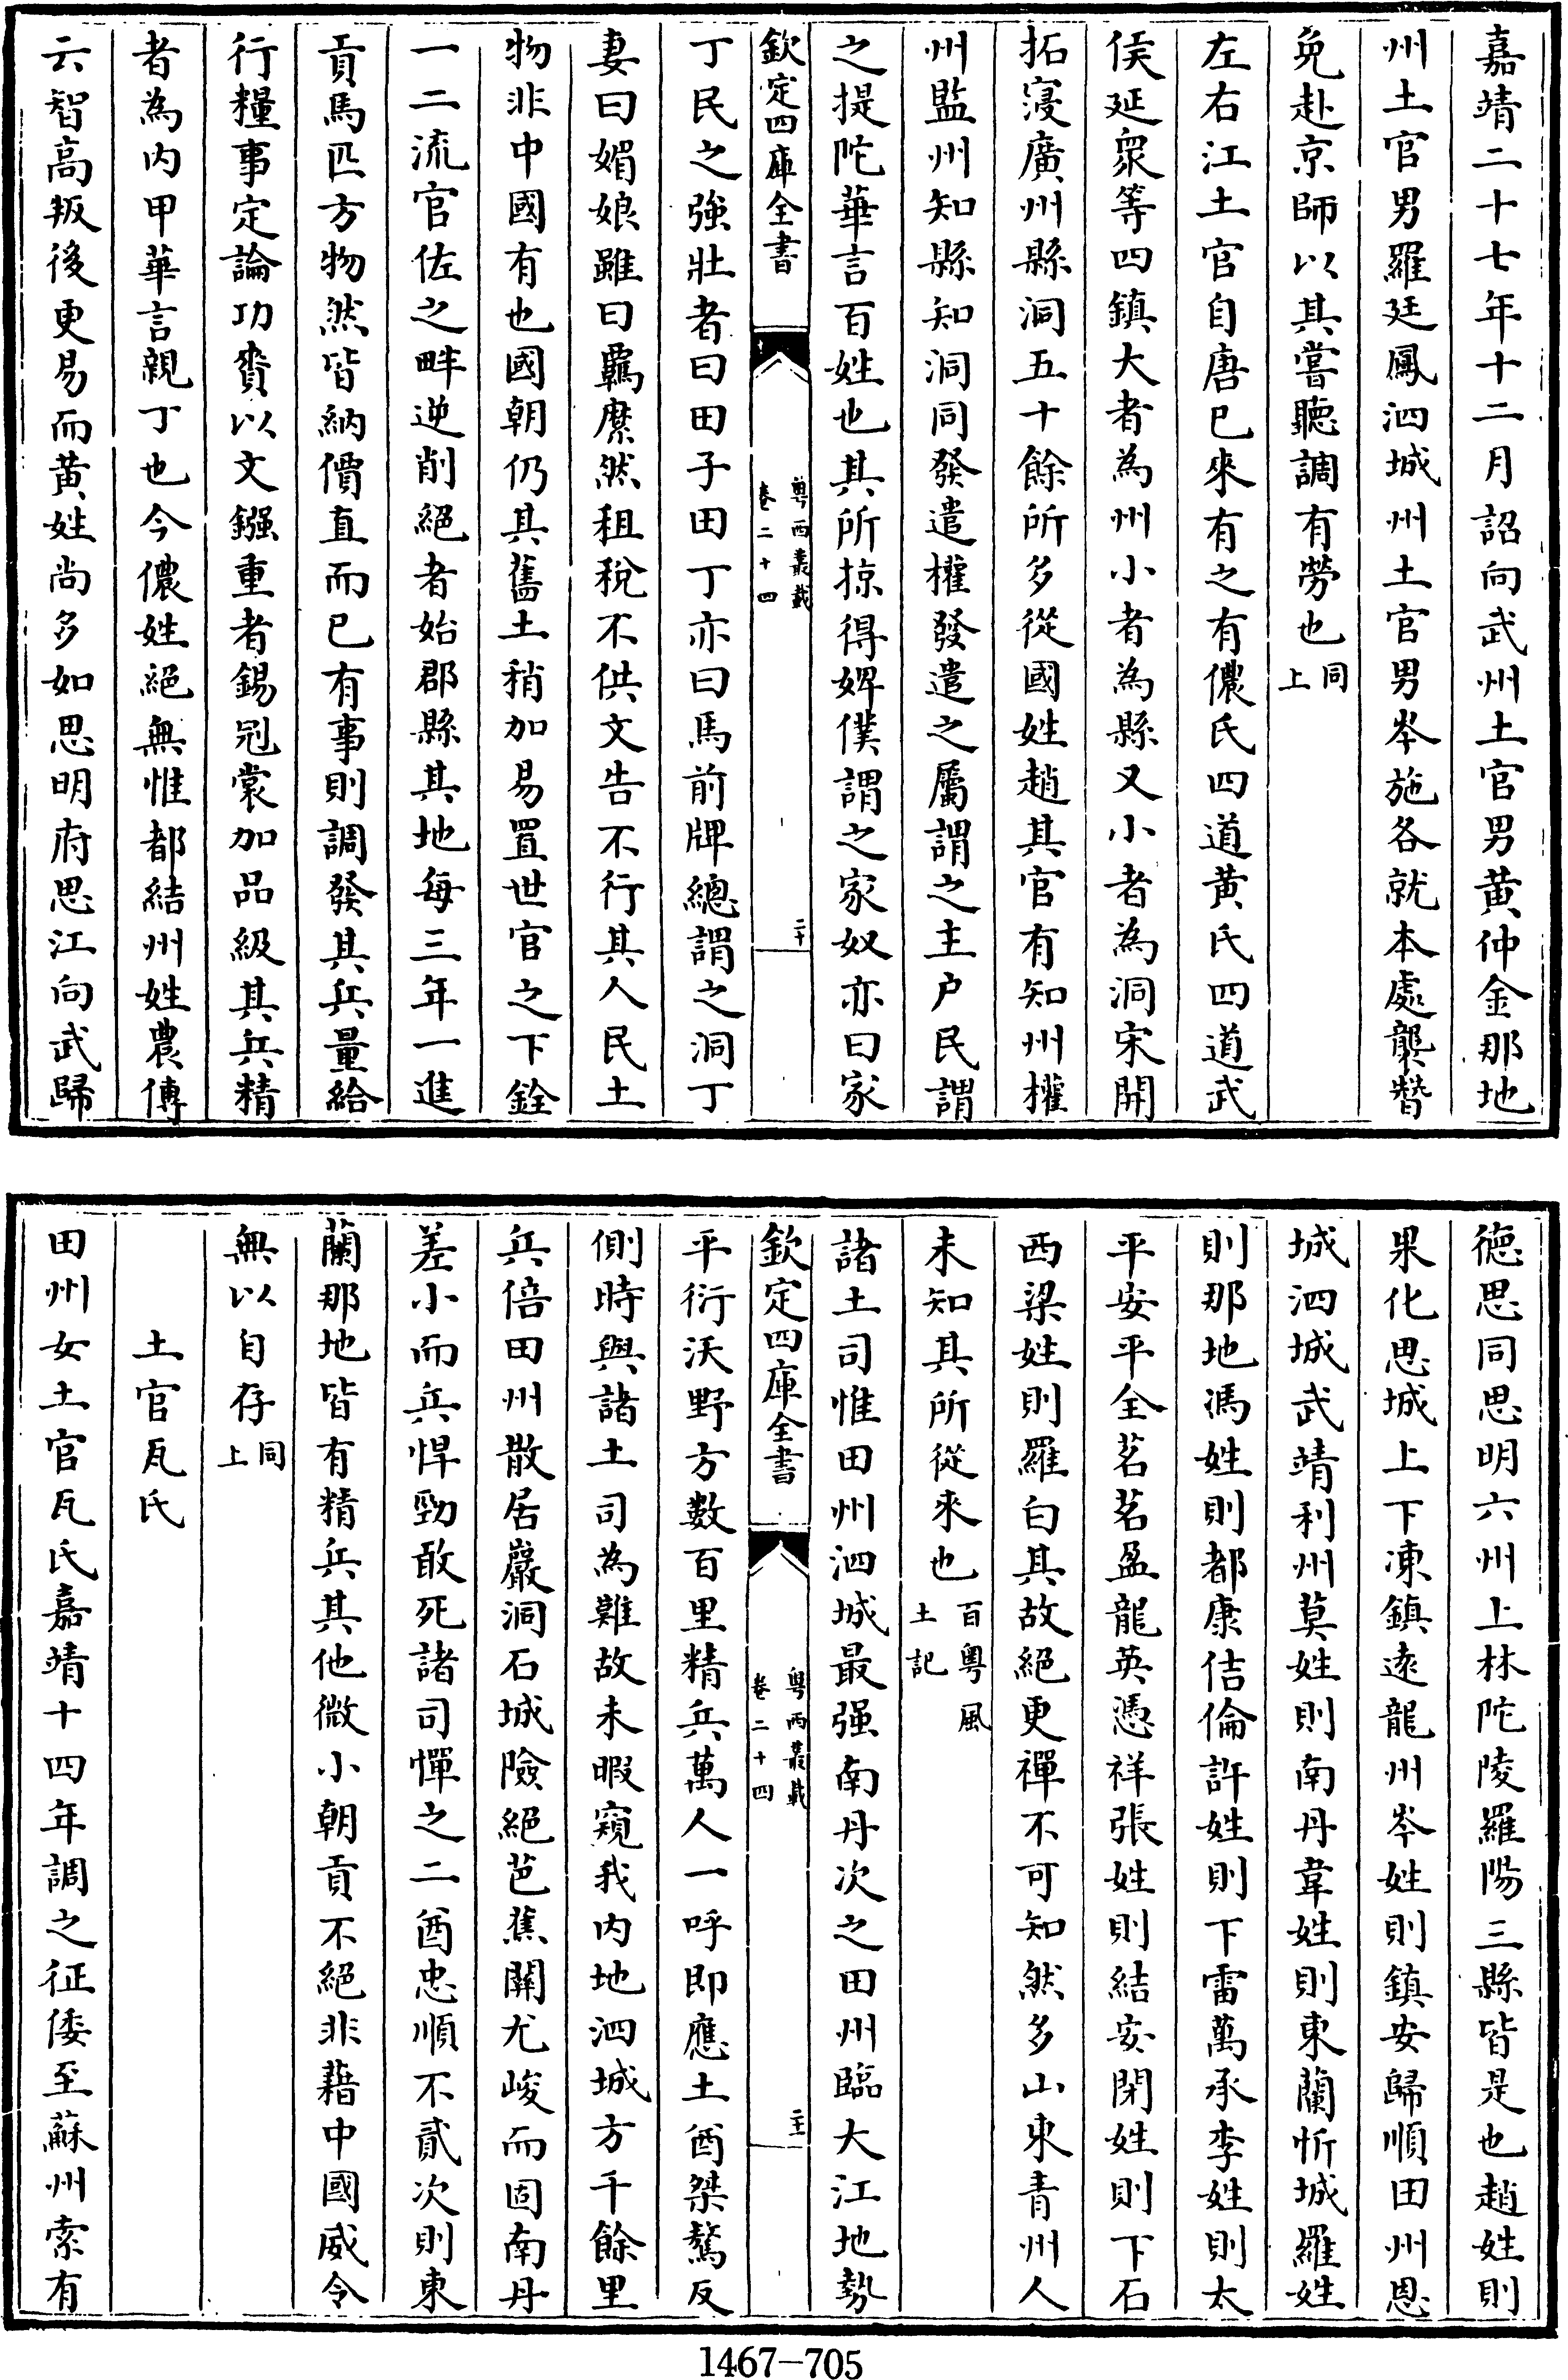 嘉靖二十七年十二月詔向武州土官男黄仲金那地
州土官男羅廷鳳泗城州土官男岑施各就本處襲替
免赴京師以其嘗聽調有勞也同上
左右江土官自唐已來有之有儂氏四道黄氏四道武
侯延衆等四鎮大者為州小者為縣又小者為洞宋開
拓寖廣州縣洞五十餘所多從國姓趙其官有知州權
州監州知縣知洞同發遣權發遣之屬謂之主户民謂
之提陀華言百姓也其所掠得婢僕謂之家奴亦曰家
欽定四庫全書
粤西叢載
卷二十四
二十
丁民之強壯者曰田子田丁亦曰馬前牌總謂之洞丁
妻曰媚娘雖曰羈縻然租稅不供文告不行其人民土
物非中國有也國朝仍其舊土稍加易置世官之下銓
一二流官佐之畔逆削絕者始郡縣其地每三年一進
貢馬匹方物然皆納價直而已有事則調發其兵量給
行糧事定論功賚以文鏹重者錫冠裳加品級其兵精
者為内甲華言親丁也今儂姓絕無惟都結州姓農傳
云智高叛後更易而黄姓尚多如思明府思江向武歸
德思同思明六州上林陀陵羅陽三縣皆是也趙姓則
果化思城上下凍鎮逺龍州岑姓則鎮安歸順田州恩
城泗城武靖利州莫姓則南丹韋姓則東蘭忻城羅姓
則那地馮姓則都康佶倫許姓則下雷萬承李姓則太
平安平全茗茗盈龍英憑祥張姓則結安閉姓則下石
西梁姓則羅白其故絕更禪不可知然多山東青州人
未知其所從來也百粤風土記
諸土司惟田州泗城最强南丹次之田州臨大江地勢
欽定四庫全書
粤西叢載
卷二十四
二十一
平衍沃野方數百里精兵萬人一呼即應土酋桀驁反
側時與諸土司為難故未暇窺我内地泗城方千餘里
兵倍田州散居巖洞石城險絕芭蕉關尤峻而固南丹
差小而兵悍勁敢死諸司憚之二酋忠順不貳次則東
蘭那地皆有精兵其他微小朝貢不絕非藉中國威令
無以自存同上
土官瓦氏
田州女土官瓦氏嘉靖十四年調之征倭至蘇州索有
1467-705